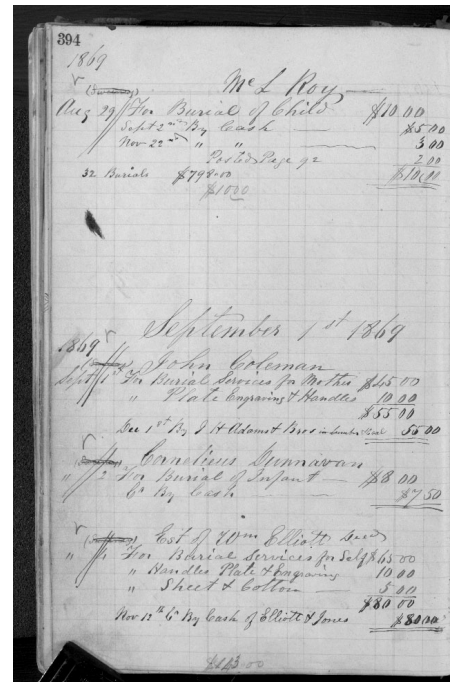 394
1869
Mc L Roy
Aug 29 For Burial of Child $10.00
Sept 2nd By Cash $5.00
Nov 22nd " " 3 00
Posted Page 92 2 00
32 Burials $798.00 $10.00
$10.00
September 1st 1869
1869
John Coleman
Sept 1st For Burial Services for Mother $45 00
" Plate Engraving & Handles 10 00
$55 00
Dec 1st By J H Adams & Bros in Lumber 55 00
Cornelius Dunnavan
" 2 For Burial of Infant $8 00
By Cash $7.50
Est of Wm Elliott Decd
" " For Burial Services for Self $65 00
" Handles Plate & Engraving 10 00
" Sheet & Cotton 5 00
$80 00
Nov 12th By Cash of Elliott & Jones $80 00
$143.00